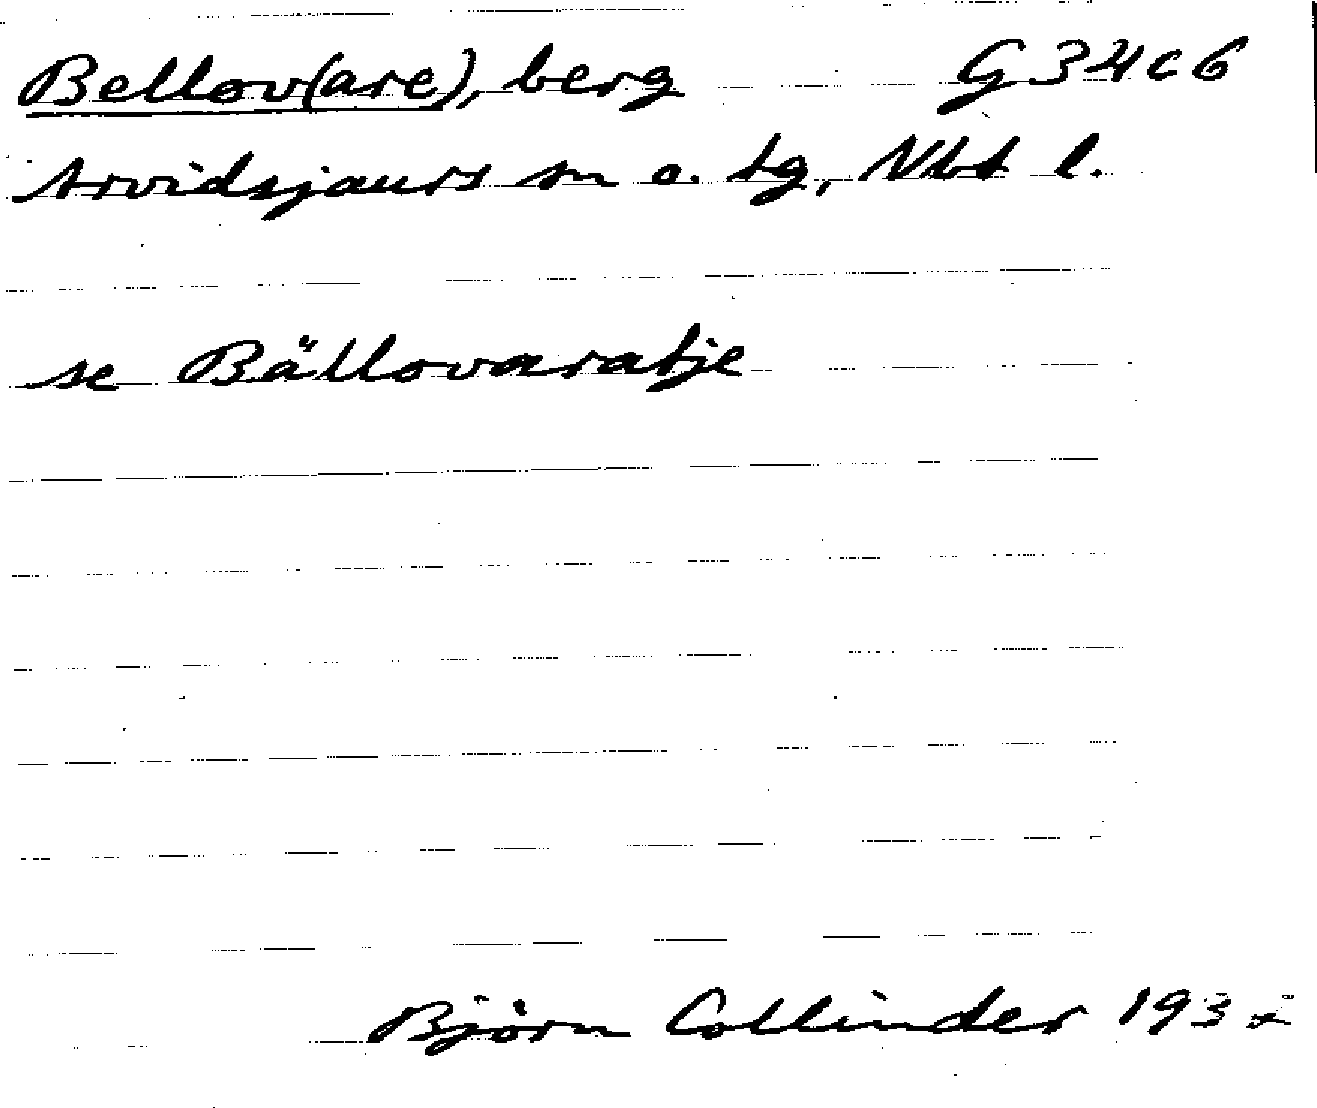 Bellov(are), berg G 34 c 6
Arvidsjaurs sn o. tg, Nbt l.
se Bällovaratje
Björn Collinder 1932